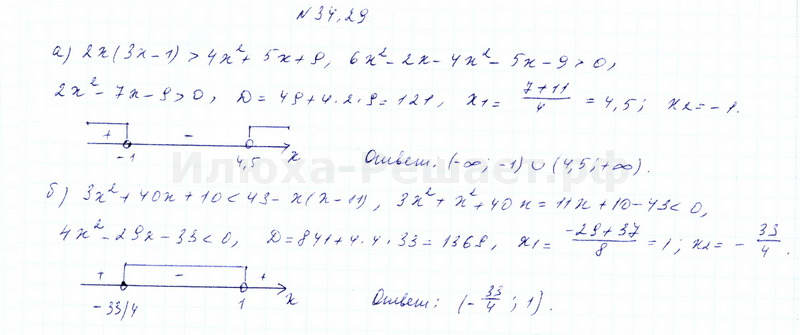 N 34,29
а) 2x(3x-1) > 4x²+ 5x+9, 6x²- 2x- 4x²- 5x-9>0,
2x²-7x-9>0, D= 49+4·2·9=121, x₁= (7+11)/4 = 4,5; x₂=-1.
+ - -1 4,5 x Ответ: (-∞; -1) ∪ (4,5; +∞).
Илюха-Решает.рф
б) 3x²+40x+10<43- x(x-11), 3x²+x²+40x = 11x+10-43<0,
4x²-29x-33<0, D=841+4·4·33=1369, x₁= (-29+37)/8 =1; x₂= - 33/4.
+ - + -33/4 1 x Ответ: (- 33/4 ; 1).